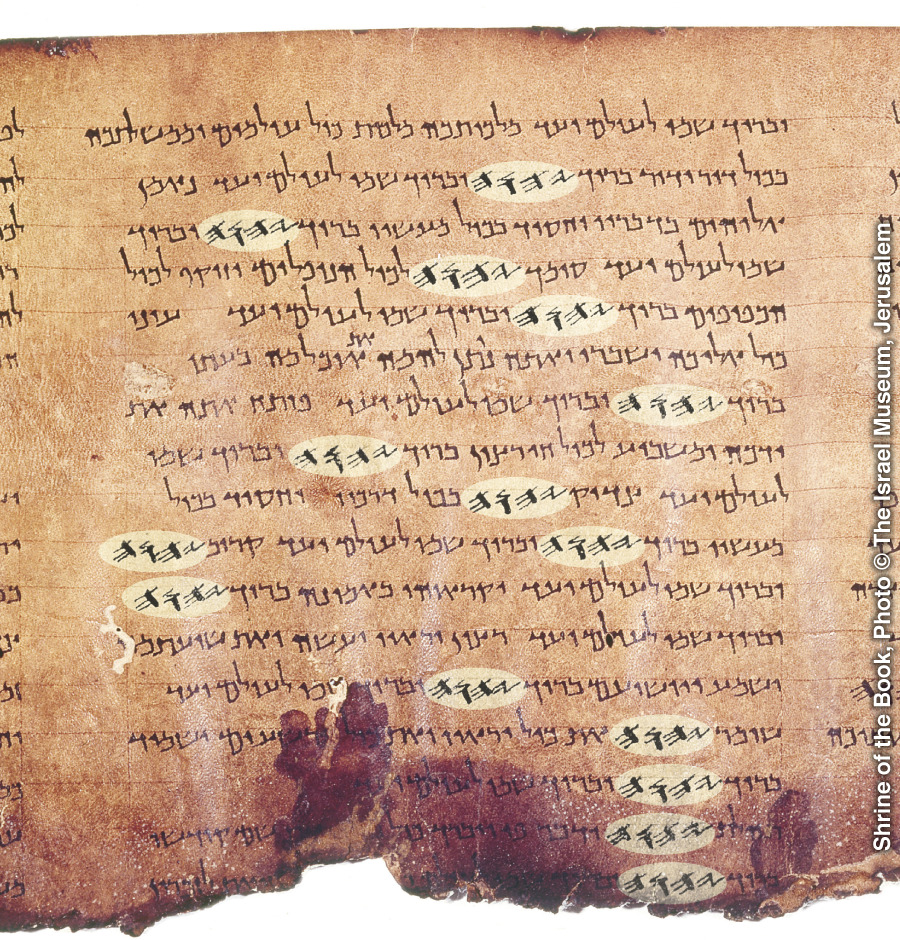 וברוך שמו לעולם ועד מלכותכה מלכות כול עולמים וממשלתכה
בכול דור ודור ברוך 𐤉𐤄𐤅𐤄 וברוך שמו לעולם ועד נאמן
אלוהים בדבריו וחסיד בכול מעשיו ברוך 𐤉𐤄𐤅𐤄 וברוך
שמו לעולם ועד סומך 𐤉𐤄𐤅𐤄 לכול הנופלים וזוקף לכול
הכפופים ברוך 𐤉𐤄𐤅𐤄 וברוך שמו לעולם ועד עיני
כול אליכה ישברו ואתה נותן להמה את אוכלמה בעתו
ברוך 𐤉𐤄𐤅𐤄 וברוך שמו לעולם ועד פותח אתה את
ידכה ומשביע לכול חי רצון ברוך 𐤉𐤄𐤅𐤄 וברוך שמו
לעולם ועד צדיק 𐤉𐤄𐤅𐤄 בכול דרכיו וחסיד בכול
מעשיו ברוך 𐤉𐤄𐤅𐤄 וברוך שמו לעולם ועד קרוב 𐤉𐤄𐤅𐤄
וברוך שמו לעולם ועד יקראוהו באמונה ברוך 𐤉𐤄𐤅𐤄
וברוך שמו לעולם ועד רצון יראיו יעשה ואת שועתמה
ישמע ויושיעם ברוך 𐤉𐤄𐤅𐤄 וברוך שמו לעולם ועד
שומר 𐤉𐤄𐤅𐤄 את כול יראיו ואת כול רשעים ישמיד
ברוך 𐤉𐤄𐤅𐤄 וברוך שמו לעולם
תהלת 𐤉𐤄𐤅𐤄 ידבר פי ויברך כול שם קודשו
ברוך 𐤉𐤄𐤅𐤄
Shrine of the Book, Photo © The Israel Museum, Jerusalem